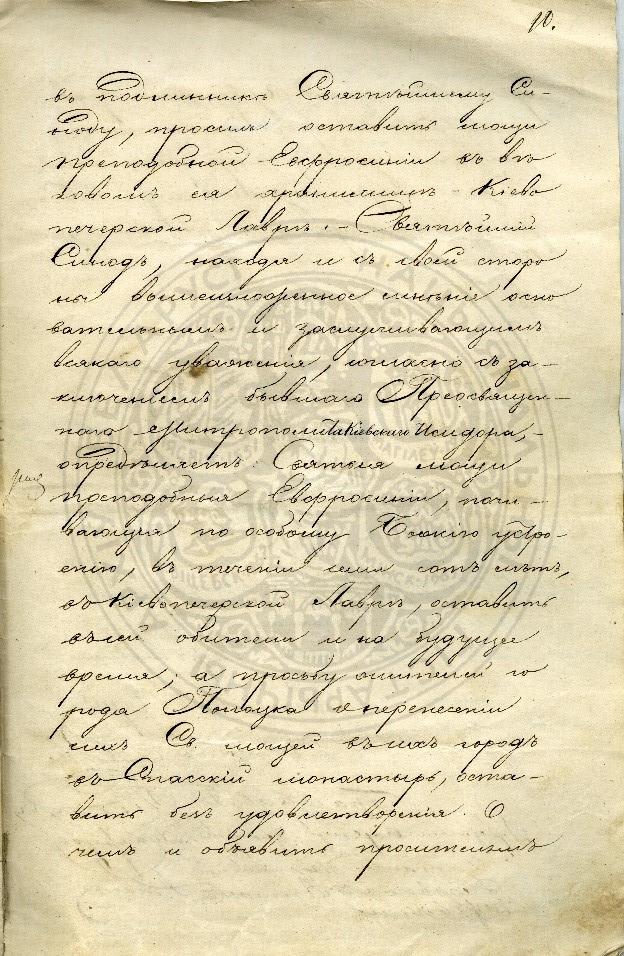 10.
въ подлинникѣ Святѣйшему Си-
ноду, просилъ оставить мощи
преподобной Евфросиніи въ вѣ
ковомъ ея хранилищѣ - Кіево
печерской Лаврѣ. - Святѣйшій
Синодъ, находя и съ своей сторо
ны вышеизложенное мнѣніе осно
вательнымъ и заслуживающимъ
всякаго уваженія, согласно съ за-
ключеніемъ бывшаго Преосвящен-
наго Митрополита Кіевскаго Исидора, -
опредѣляетъ: Святыя мощи
преподобныя Евфросиніи, почи-
вающія по особому Божію устро-
енію, въ теченіи семи сотъ лѣтъ,
въ Кіевопечерской Лаврѣ, оставить
въ сей обители и на будущее
время; а просьбу жителей го
рода Полоцка о перенесеніи
сихъ Св. мощей въ ихъ городъ
въ Спасскій монастырь, оста-
вить безъ удовлетворенія. О
чемъ и объявить просителямъ